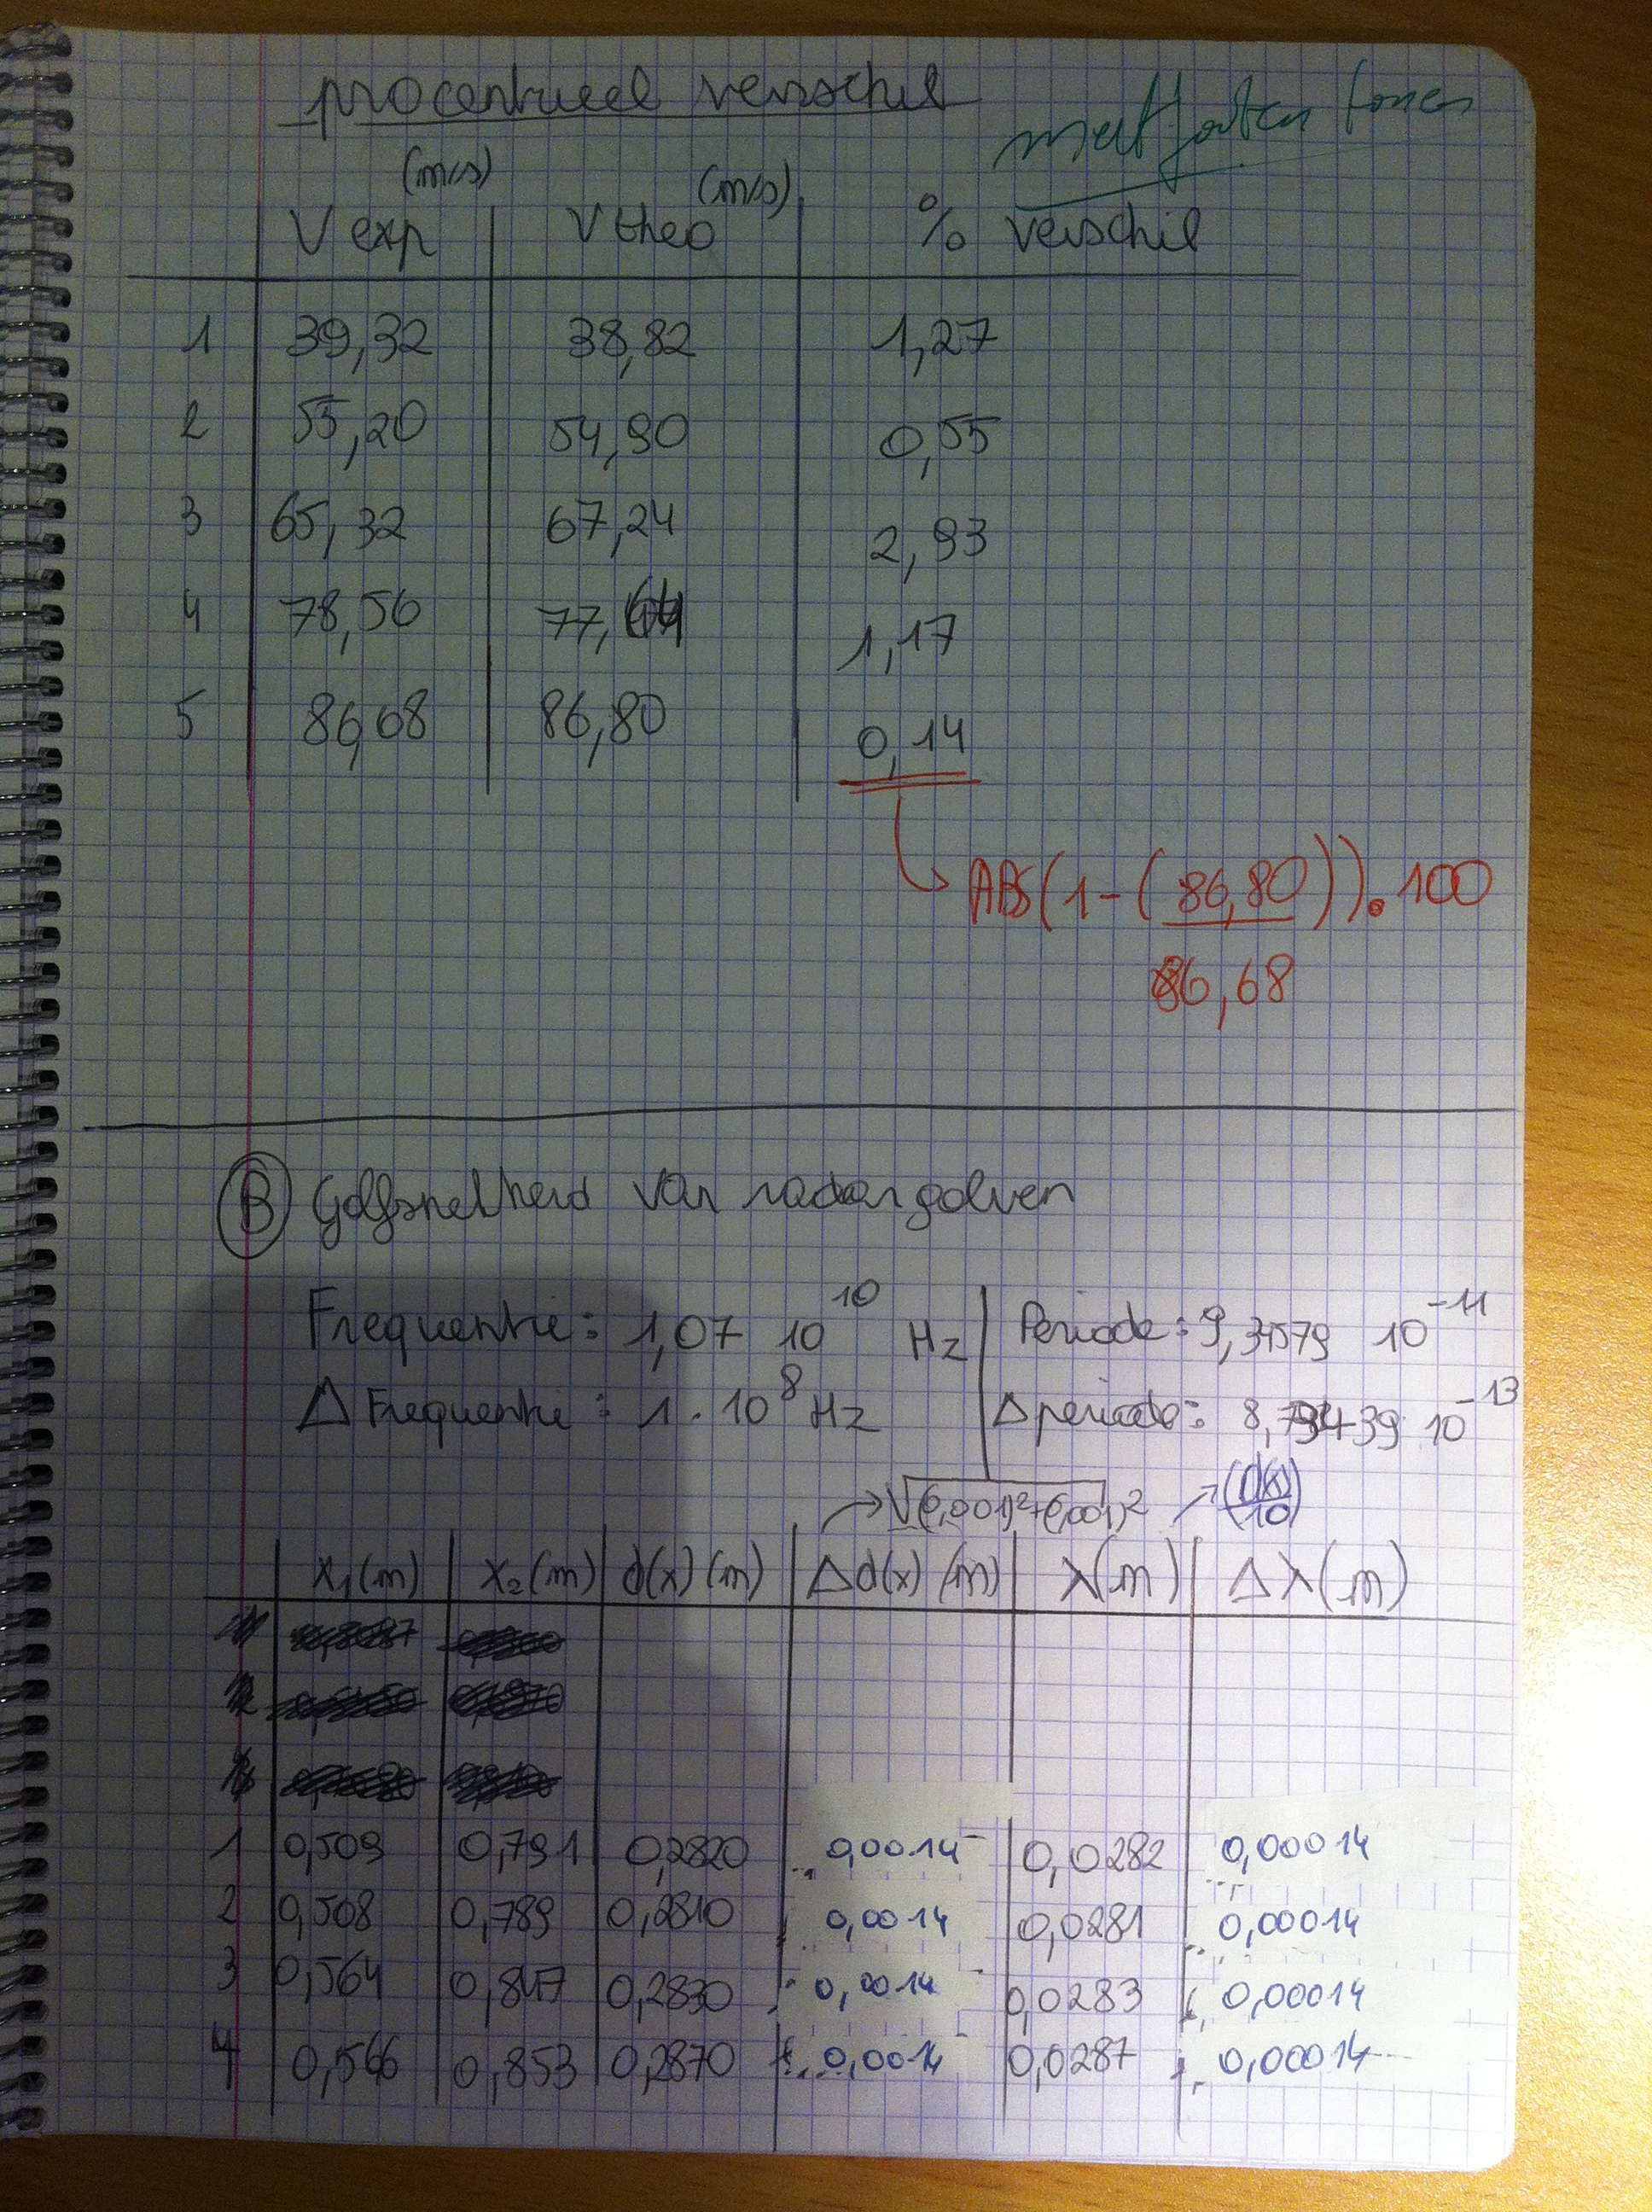 procentueel verschil
meetfouten
(m/s) (m/s)
V exp V theo % verschil
1 39,32 38,82 1,27
2 55,20 54,90 0,55
3 65,32 67,24 2,93
4 78,56 77,64 1,17
5 86,68 86,80 0,14
ABS(1-(86,80)).100
86,68
B Golfsnelheid van radargolven
Frequentie: 1,07 10^10 Hz Periode: 9,34579 10^-11
Δ Frequentie: 1.10^8 Hz Δ periode: 8,73439 10^-13
√(0,001)²+(0,001)² (d(x)/10)
x₁(m) x₂(m) d(x)(m) Δd(x)(m) λ(m) Δλ(m)
1 0,509 0,791 0,2820 0,0014 0,0282 0,00014
2 0,508 0,789 0,2810 0,0014 0,0281 0,00014
3 0,564 0,847 0,2830 0,0014 0,0283 0,00014
4 0,566 0,853 0,2870 0,0014 0,0287 0,00014